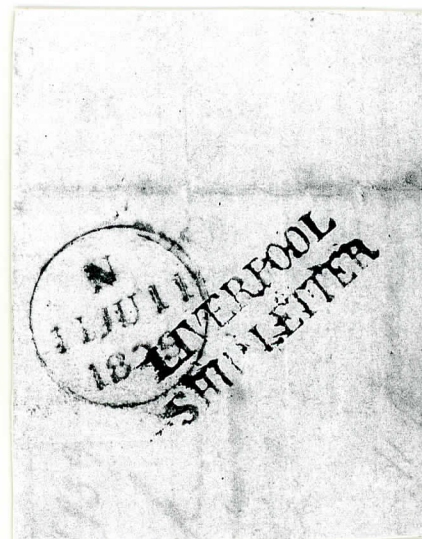 N
11JU11
LIVERPOOL
SHIP LETTER